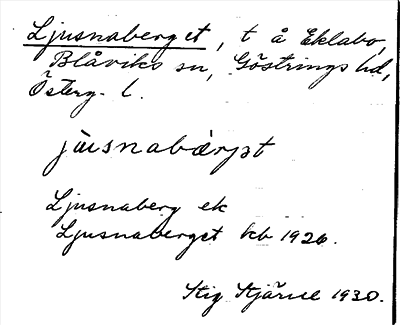 Ljusnaberget, t å Eklabo,
Blåviks sn, Göstrings hd,
Österg. l.
jùsnabærjət
Ljusnaberg ek
Ljusnaberget kb 1926.
Stig Stjärne 1930.